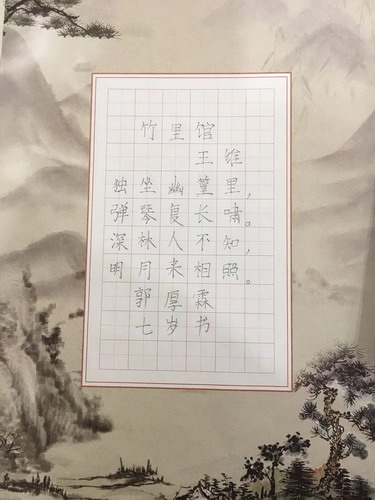 竹里馆
王维
独坐幽篁里，
弹琴复长啸。
深林人不知，
明月来相照。
郭厚霖
七岁书